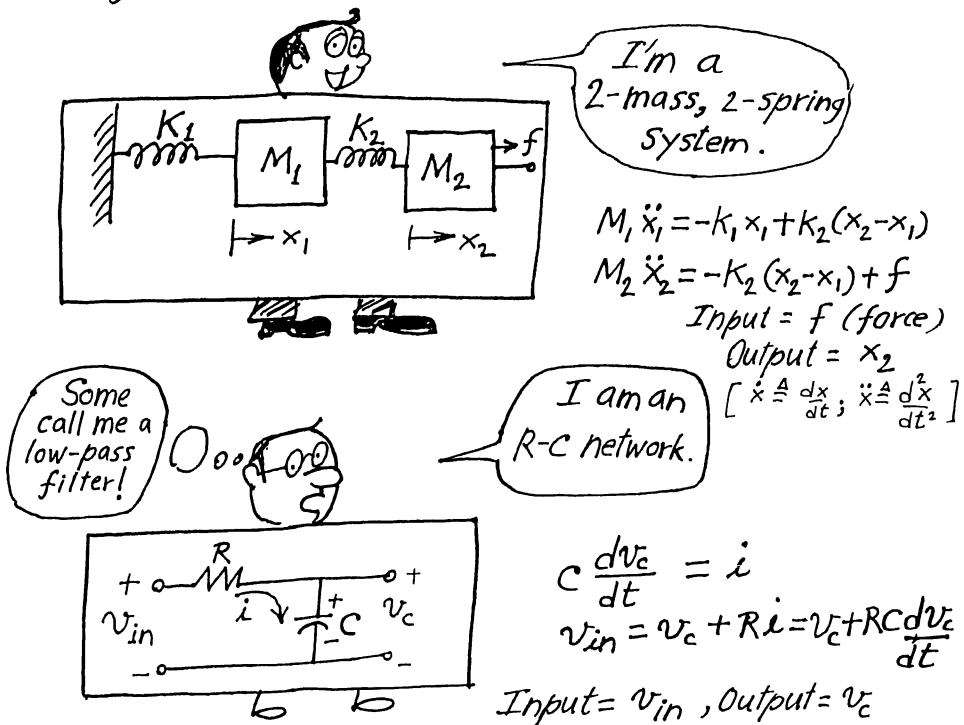 I'm a
2-mass, 2-spring
system.
K₁
M₁
K₂
M₂
f
x₁
x₂
M₁ẍ₁ = -K₁x₁ + K₂(x₂-x₁)
M₂ẍ₂ = -K₂(x₂-x₁) + f
Input = f (force)
Output = x₂
[ẋ ≜ dx/dt ; ẍ ≜ d²x/dt²]
Some
call me a
low-pass
filter!
I am an
R-C network.
R
+
+
v_in
i
+
C
-
v_c
-
-
C dv_c/dt = i
v_in = v_c + Ri = v_c + RC dv_c/dt
Input = v_in , Output = v_c